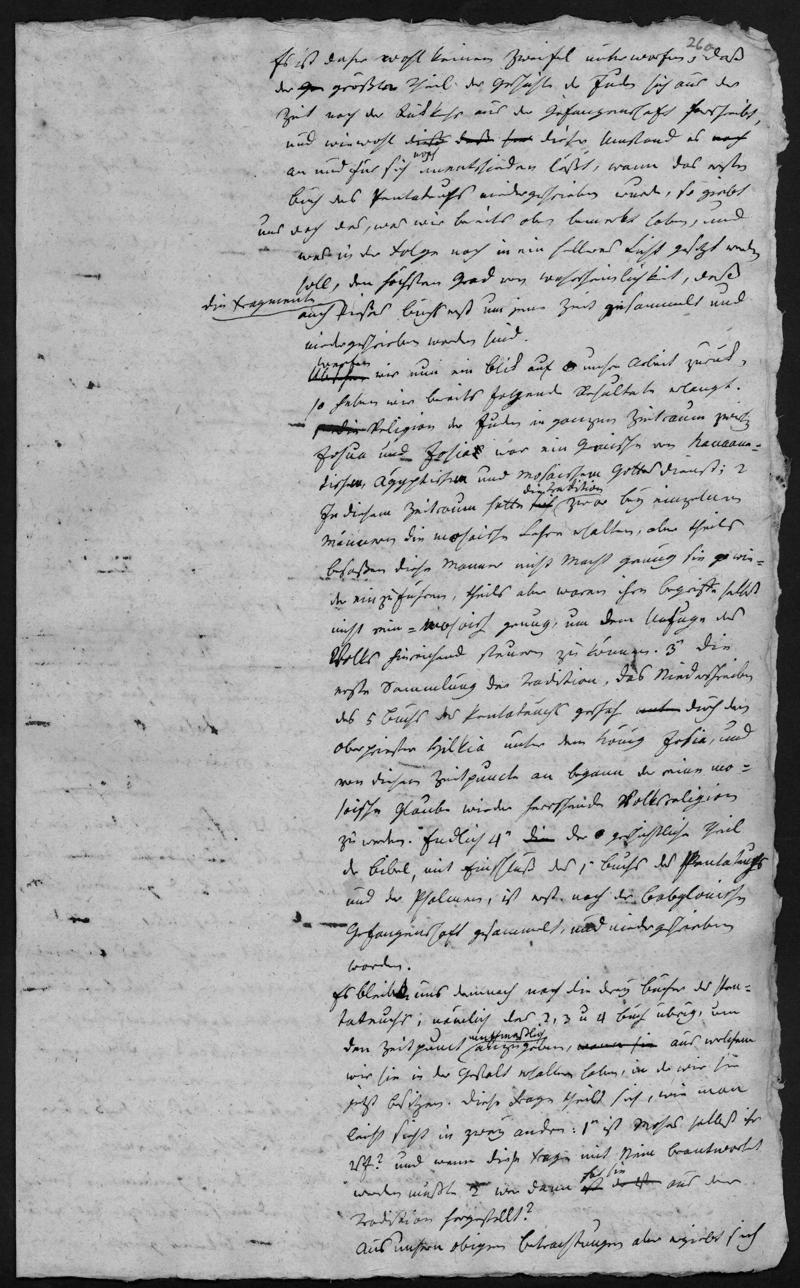 260
Es ist daher wohl keinem Zweifel unterworfen, daß
der größte Theil der Geschichte der Juden sich aus der
Zeit nach der Rückkehr aus der Gefangenschaft herschreibt,
und wiewohl dieser Umstand es
an und für sich noch unentschieden läßt, wann das erste
buch des Pentateuchs niedergeschrieben wurde, so giebt
uns doch das, was wir bereits oben bemerkt haben, und
was in der Folge noch in ein helleres Licht gesetzt werden
soll, den höchsten Grad von wahrscheinlichkeit, daß
die Fragmente
auch dieses buchs erst um jene Zeit gesammelt und
niedergeschrieben worden sind.
werfen wir nun ein blick auf unsere Arbeit zurück,
so haben wir bereits folgende Resultate erlangt.
Religion der Juden im ganzen Zeitraum zwisch
Josua und Josia war ein Gemische von Kanaani=
tischen, Ägyptischem und Mosaischem Gottesdienst; 2
In diesem Zeitraum hatte die Tradition zwar bey einzelnen
Männern die mosaische Lehre erhalten, aber theils
besaßen diese Männer nicht Macht genug sie wie=
der einzuführen, theils aber waren ihre begriffe selbst
nicht rein=mosaisch genug, um dem Unfuge des
Volks hinreichend steuern zu können. 3 die
erste Sammlung der Tradition, das Niederschreiben
des 5 buchs des Pentateuchs geschah durch den
oberpriester Hilkia unter dem König Josia, und
von diesem Zeitpuncte an begann der reine mo=
saische Glaube wieder herrschende Volksreligion
zu werden. Endlich 4 der geschichtliche Theil
der bibel, mit Einschluß des 1 buchs des Pentateuchs
und der Psalmen, ist erst nach der babylonischen
Gefangenschaft gesammelt, und niedergeschrieben
worden.
Es bleibt uns demnach noch die drey bücher des Pen=
tateuchs, nämlich das 2, 3 u 4 buch übrig, um
den Zeitpunct muthmaßlich anzugeben, aus welchem
wir sie in der Gestalt erhalten haben, in der wir sie
jetzt besitzen. diese Frage theilt sich, wie man
leicht sieht in zwey andere: 1 ist Moses selbst ihr
Vf? und wenn diese Frage mit Nein beantwortet
werden müßte 2 wer dann hat sie aus der
Tradition hergestellt?
Aus unsern obigen betrachtungen aber ergiebt sich